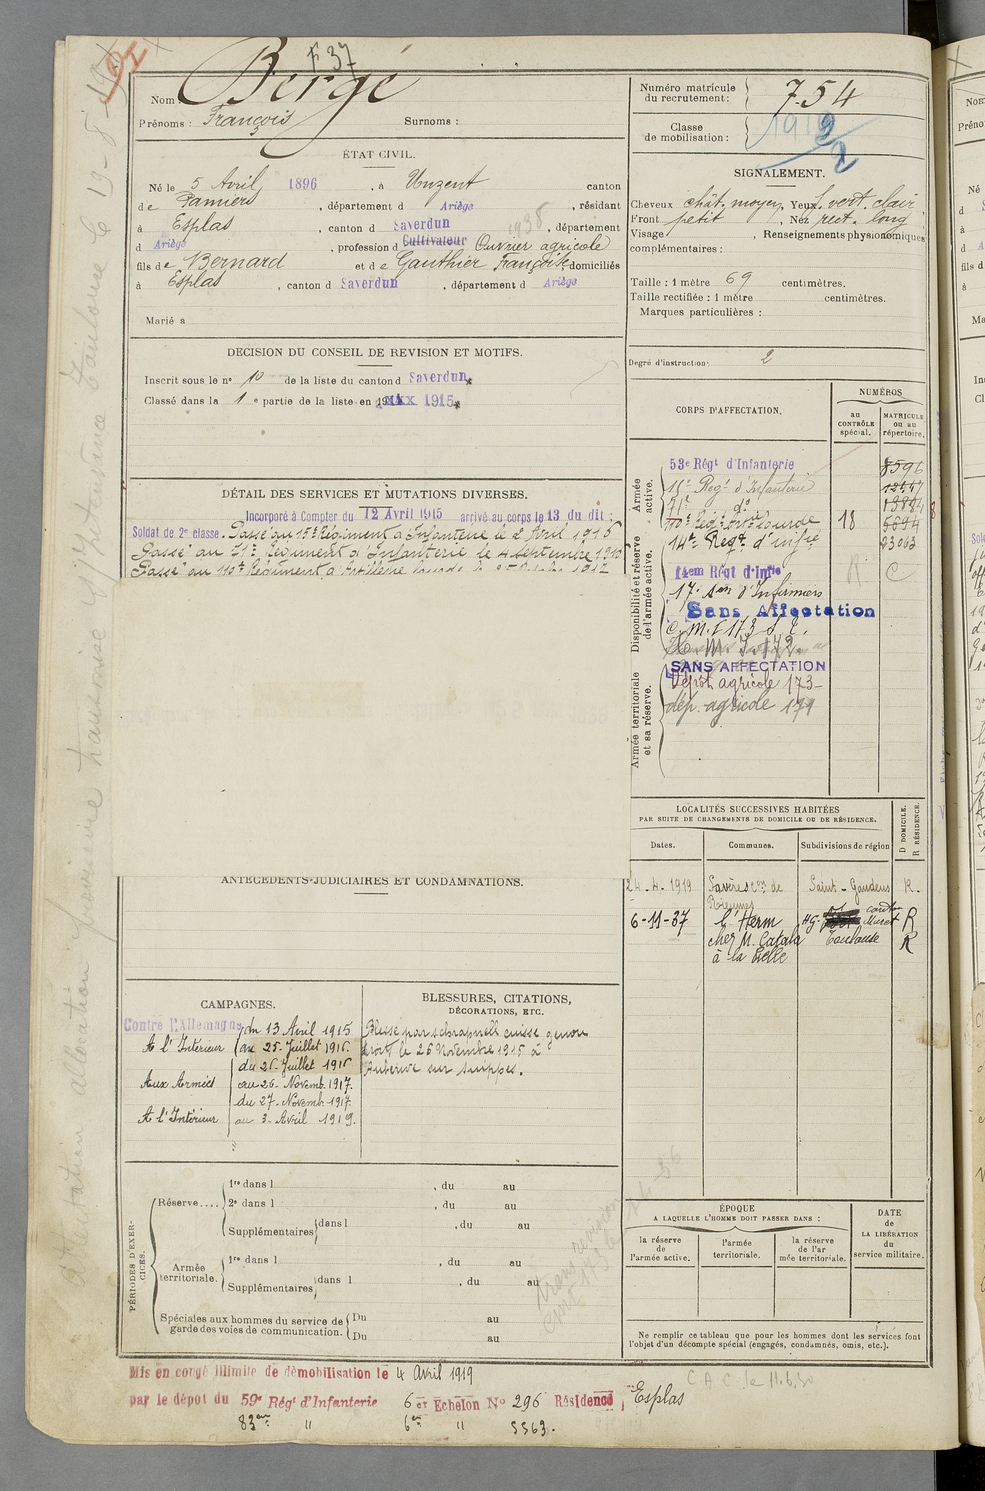 F 37
Nom : Bergé
Prénoms : François Surnoms :
Numéro matricule du recrutement : 754
Classe de mobilisation :
ÉTAT CIVIL.
Né le 5 Avril 1896, à Unzent canton
de Pamiers, département d Ariège, résidant
à Esplas, canton d Saverdun, département
d Ariège, profession d Cultivateur Ouvrier agricole
fils de Bernard et de Gauthier Françoise domiciliés
à Esplas, canton d Saverdun, département d Ariège
Marié à
SIGNALEMENT.
Cheveux chât. moyen, Yeux vert clair
Front petit, Nez rect. long
Visage , Renseignements physionomiques
complémentaires :
Taille : 1 mètre 69 centimètres.
Taille rectifiée : 1 mètre centimètres.
Marques particulières :
Degré d'instruction : 2
DECISION DU CONSEIL DE REVISION ET MOTIFS.
Inscrit sous le n° 10 de la liste du canton d Saverdun
Classé dans la 1e partie de la liste en 1915
DÉTAIL DES SERVICES ET MUTATIONS DIVERSES.
Incorporé à Compter du 12 Avril 1915 arrivé au corps le 13 du dit :
Soldat de 2e classe. Passé au Régiment d'Infanterie le 2 Avril 1916
Passé au Régiment d'Infanterie le 4 Septembre 1916
Passé au Régiment d'Artillerie lourde le 1917
CORPS D'AFFECTATION.
NUMÉROS
au CONTRÔLE spécial.
MATRICULE ou au répertoire.
Armée active.
53e Régt d'Infanterie 8596
Regt d'Infanterie
do
Reg. Art. Lourde 18
14e Regt d'infie 23063
Disponibilité et réserve de l'armée active.
14em Régt d'Infie R C
17e Son d'Infirmiers
Sans Affectation
C.M.I 173 S.E.
C.M.I. 172.
Armée territoriale et sa réserve.
SANS AFFECTATION
Dépôt agricole 173
dép. agricole 171
LOCALITÉS SUCCESSIVES HABITÉES
PAR SUITE DE CHANGEMENTS DE DOMICILE OU DE RÉSIDENCE.
Dates. Communes. Subdivisions de région D DOMICILE. R RÉSIDENCE.
24-4-1919 Savères con de Rieumes Saint-Gaudens R.
6-11-37 l'Herm HG. canton Muret R
chez M. Catala Toulouse R
à la
ANTÉCÉDENTS JUDICIAIRES ET CONDAMNATIONS.
CAMPAGNES.
Contre l'Allemagne du 13 Avril 1915
A l'Intérieur au 25 Juillet 1916.
du 26 Juillet 1916
Aux Armées au 26 Novemb. 1917.
du 27 Novemb. 1917
A l'Intérieur au 3 Avril 1919.
BLESSURES, CITATIONS,
DÉCORATIONS, ETC.
Blessé par schrapnell cuisse genou
droit le 26 Novembre 1916 à
Auberive sur Suippes.
PÉRIODES D'EXERCICES.
Réserve....
1re dans l , du au
2e dans l , du au
Supplémentaires dans l , du au
Armée territoriale.
1re dans l , du au
Supplémentaires dans l , du au
Spéciales aux hommes du service de garde des voies de communication.
Du au
Du au
ÉPOQUE
A LAQUELLE L'HOMME DOIT PASSER DANS :
la réserve de l'armée active.
l'armée territoriale.
la réserve de l'armée territoriale.
DATE DE LA LIBÉRATION du service militaire.
Ne remplir ce tableau que pour les hommes dont les services font
l'objet d'un décompte spécial (engagés, condamnés, omis, etc.).
Mis en congé illimité de démobilisation le 4 Avril 1919
par le dépôt du 59e Régt d'Infanterie 6er Echelon No 296 Résidence Esplas
83em " 6em " 5563.
C A C le 11.6.30